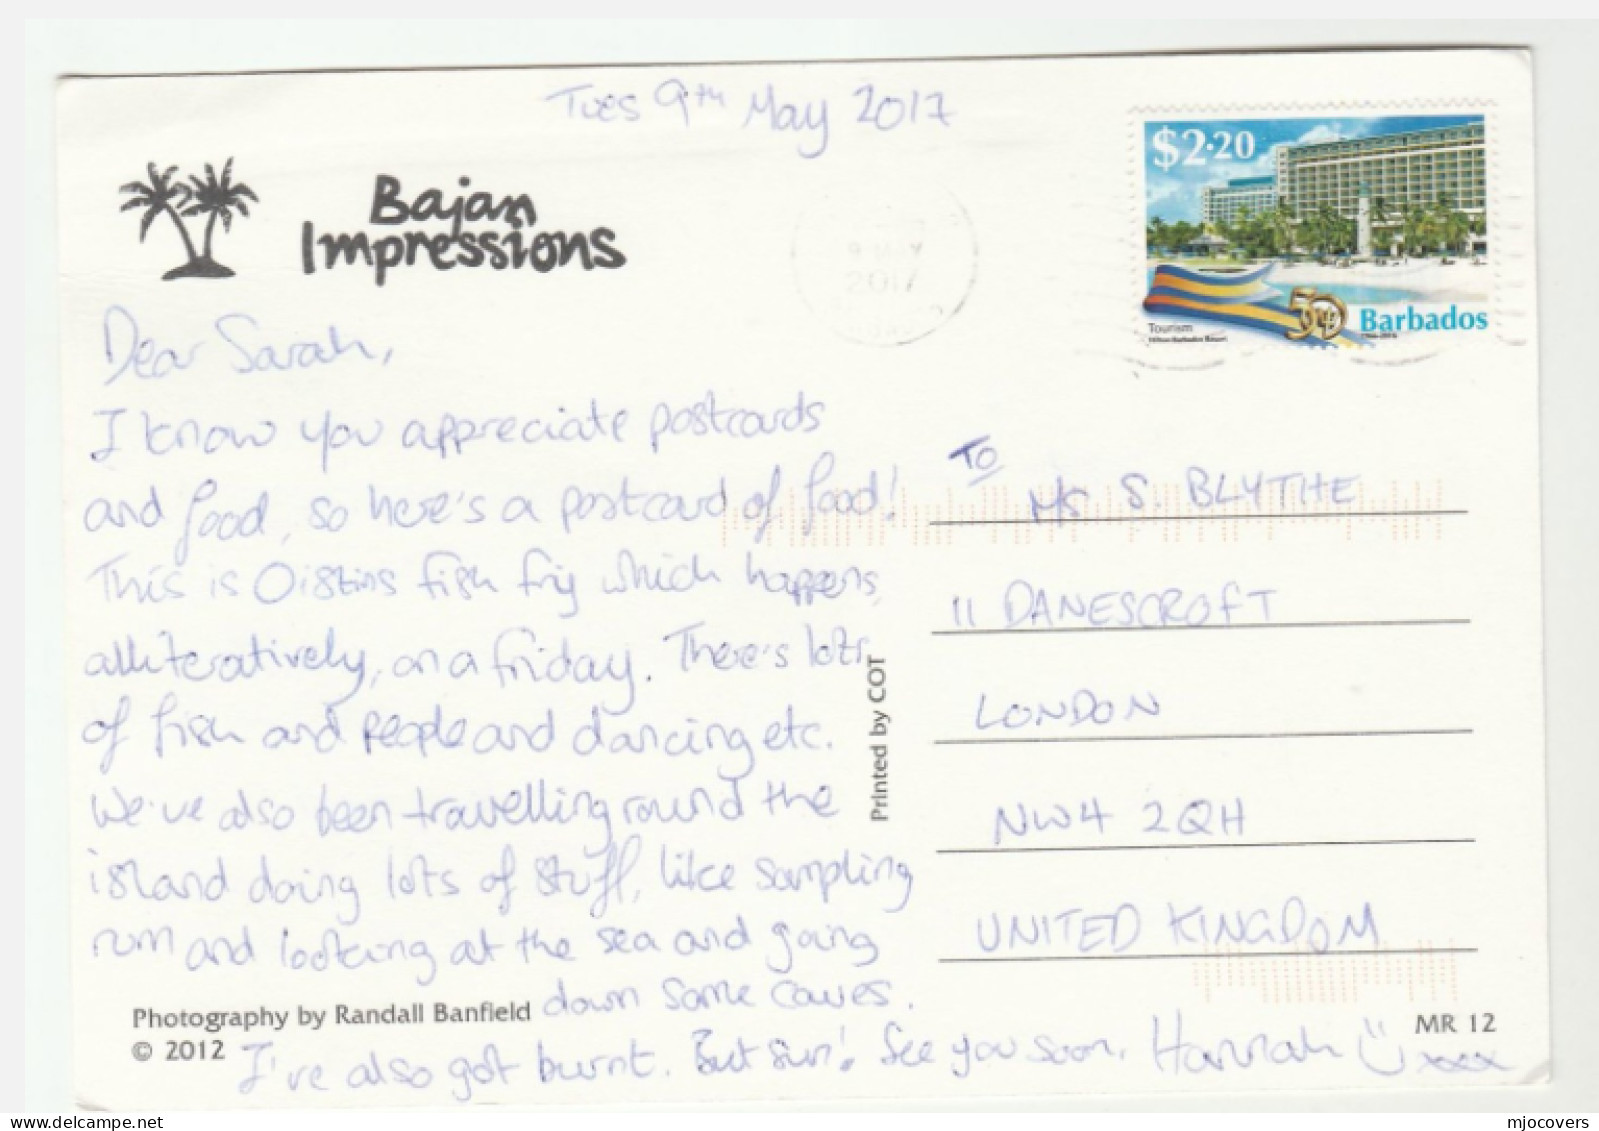 Tues 9th May 2017
Bajan
Impressions
9 MAY
2017
$2.20
50
Tourism
Hilton Barbados Resort
Barbados
1966-2016
Dear Sarah,
I know you appreciate postcards
and food, so here's a postcard of food!
This is Oistins fish fry which happens,
alliteratively, on a friday. There's lots
of fish and people and dancing etc.
We've also been travelling round the
island doing lots of stuff, like sampling
rum and looking at the sea and going
down some caves.
I've also got burnt. But sun! See you soon, Hannah xxx
Printed by COT
To
Ms S. BLYTHE
11 DANESCROFT
LONDON
NW4 2QH
UNITED KINGDOM
Photography by Randall Banfield
© 2012
MR 12
www.delcampe.net
mjocovers